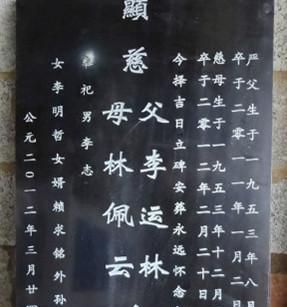 严父生于一九五三年八月
卒于二零一一年一月二
慈母生于一九五三年十二月
卒于二零一二年二月二十日
今择吉日立碑安葬永远怀念
顯
慈父李运林
母林佩云
祀男李志
女李明哲女婿賴求銘外孙
公元二〇一二年三月廿